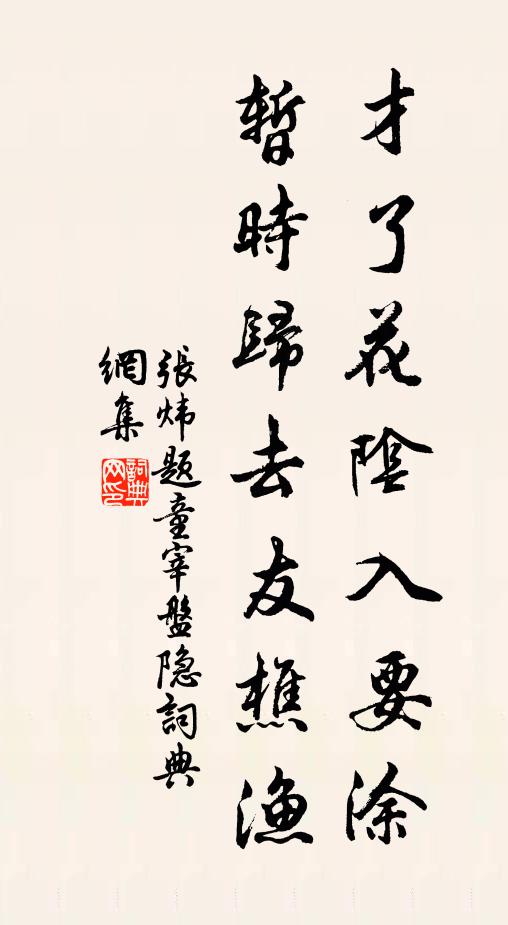 才了花陰入要涂
暫時歸去友樵漁
張煒题童宰盤隐詞典
網集
詞典
网印